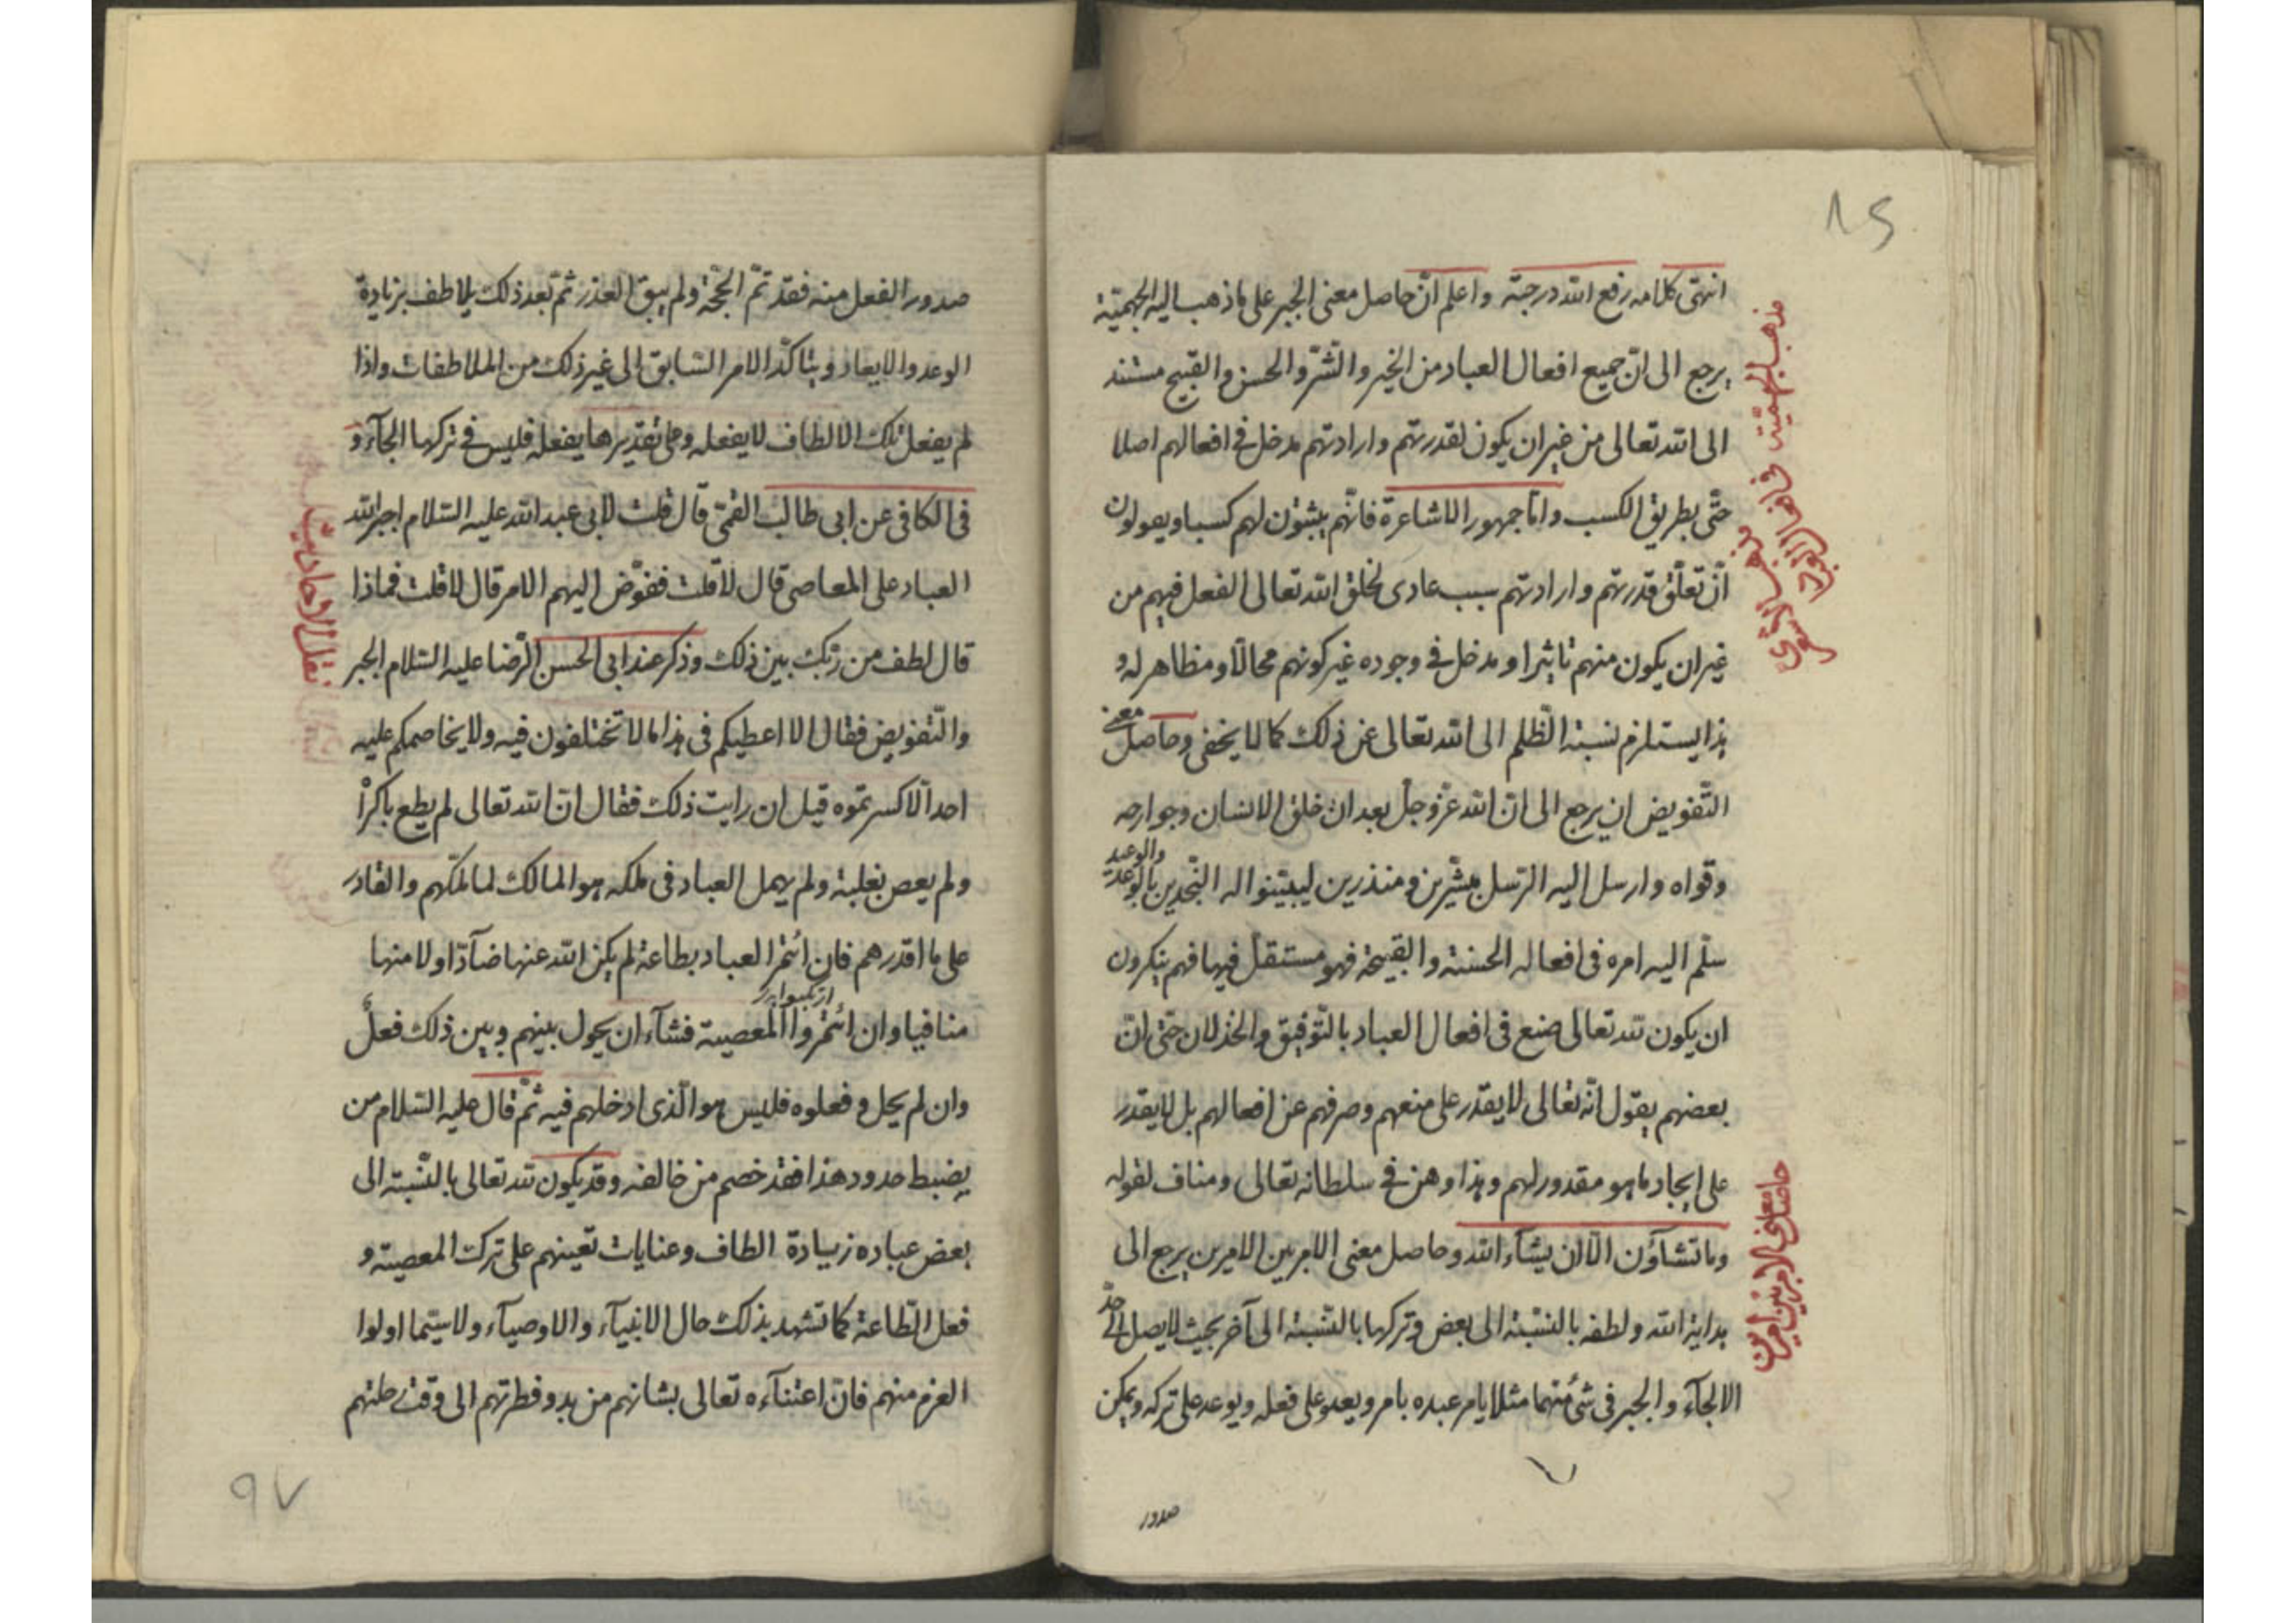 ٨٢
انتهى كلامه رفع الله درجته واعلم انّ حاصل معنى الجبر على ما ذهب اليه الجهميّة
يرجع الى انّ جميع افعال العباد من الخير والشّرّ والحسن والقبيح مستند
الى الله تعالى من غير ان يكون لقدرتهم وارادتهم مدخل فى افعالهم اصلا
حتّى بطريق الكسب وامّا جمهور الاشاعرة فانّهم يثبتون لهم كسبا ويقولون
انّ تعلّق قدرتهم وارادتهم سبب عادى لخلق الله تعالى الفعل فيهم من
غير ان يكون منهم تاثيرا ومدخل فى وجوده غير كونهم محالّا ومظاهر له و
هذا يستلزم نسبة الظّلم الى الله تعالى عن ذلك كما لا يخفى وحاصل معنى
التّفويض ان يرجع الى انّ الله عزّ وجلّ بعد ان خلق الانسان وجوارحه
وقواه وارسل اليه الرّسل مبشّرين ومنذرين ليبيّنوا له النّجدين بالوعد والوعيد
سلّم اليه امره فى افعاله الحسنة والقبيحة فهو مستقلّ فيها فهم ينكرون
ان يكون لله تعالى صنع فى افعال العباد بالتّوفيق والخذلان حتّى انّ
بعضهم يقول انّه تعالى لا يقدر على منعهم وصرفهم عن افعالهم بل لا يقدر
على ايجاد ما هو مقدور لهم وهذا وهن فى سلطانه تعالى ومناف لقوله
وما تشآؤن الّا ان يشآء الله وحاصل معنى الامر بين الامرين يرجع الى
هداية الله ولطفه بالنّسبة الى بعض وتركها بالنّسبة الى آخر بحيث لا يصل الى حدّ
الالجآء والجبر فى شئ منهما مثلا يامر عبده بامر ويعد على فعله ويوعد على تركه ويمكن
صدور
مذهب الجهميّة
مذهب الاشعرى
حاصل معنى الامر بين امرين
صدور الفعل منه فقد تمّ الحجّة ولم يبق العذر ثمّ بعد ذلك يلاطف بزيادة
الوعد والايعاد ويتاكّد الامر السّابق الى غير ذلك من الملاطفات واذا
لم يفعل تلك الالطاف لا يفعله وعلى تقديرها يفعله فليس فى تركها الجآء و
فى الكافى عن ابى طالب القمّى قال قلت لابى عبد الله عليه السّلام اجبر الله
العباد على المعاصى قال لا قلت ففوّض اليهم الامر قال لا قلت فماذا
قال لطف من ربّك بين ذلك وذكر عند ابى الحسن الرّضا عليه السّلام الجبر
والتّفويض فقال الا اعطيكم فى هذا ما لا تختلفون فيه ولا يخاصمكم عليه
احد الّا كسرتموه قيل ان رايت ذلك فقال انّ الله تعالى لم يطع باكراه
ولم يعص بغلبة ولم يهمل العباد فى ملكه هو المالك لما ملّكهم والقادر
على ما اقدرهم فان ائتمر العباد بطاعة لم يكن الله عنها صآدّا ولا منها
منافيا وان ائتمروا المعصية فشآء ان يحول بينهم وبين ذلك فعل
وان لم يحل وفعلوه فليس هو الّذى ادخلهم فيه ثمّ قال عليه السّلام من
يضبط حدود هذا فقد خصم من خالفه وقد يكون لله تعالى بالنّسبة الى
بعض عباده زيادة الطاف وعنايات تعينهم على ترك المعصية و
فعل الطّاعة كما تشهد بذلك حال الانبيآء والاوصيآء ولا سيّما اولوا
العزم منهم فانّ اعتنآءه تعالى بشانهم من بدو فطرتهم الى وقت رحلتهم
نقل الاحاديث
٩٧